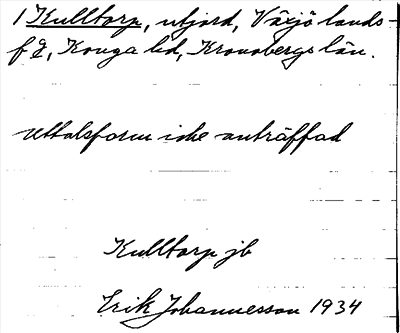 1 Kulltorp, utjord, Växjö lands-
fg, Konga hd, Kronobergs län.
uttalsform icke anträffad
Kulltorp jb
Erik Johannesson 1934